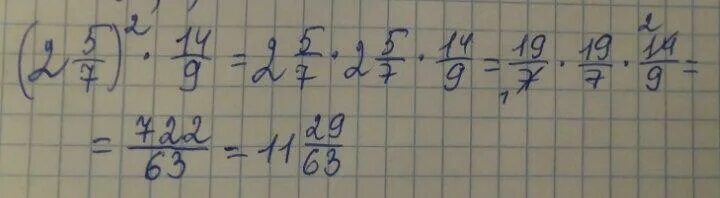 (2 5/7)² · 14/9 = 2 5/7 · 2 5/7 · 14/9 = 19/7 1 · 19/7 · 14/9 2 =
= 722/63 = 11 29/63